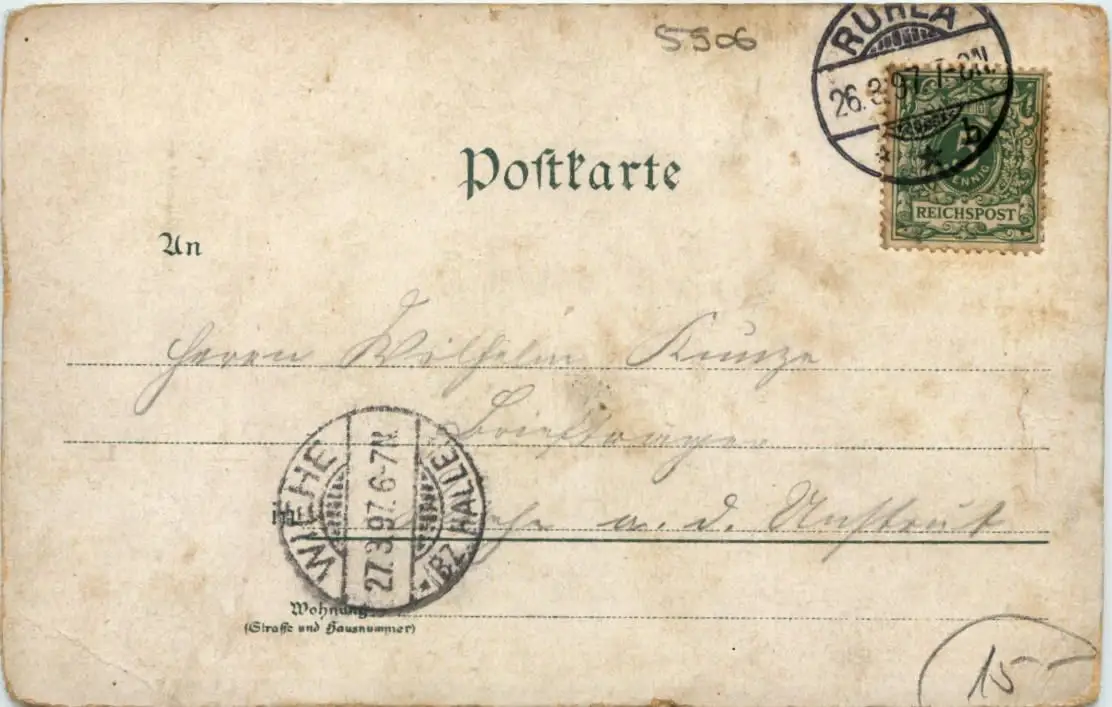 5506
RUHLA
26.3.97. 7-8N.
b
PFENNIG
REICHSPOST
Postkarte
An
Herrn Wilhelm Kunze
Briefträger
in Wiehe a. d. Unstrut
WIEHE
27.3.97. 6-7N
(BZ. HALLE)
Wohnung
(Straße und Hausnummer)
15-